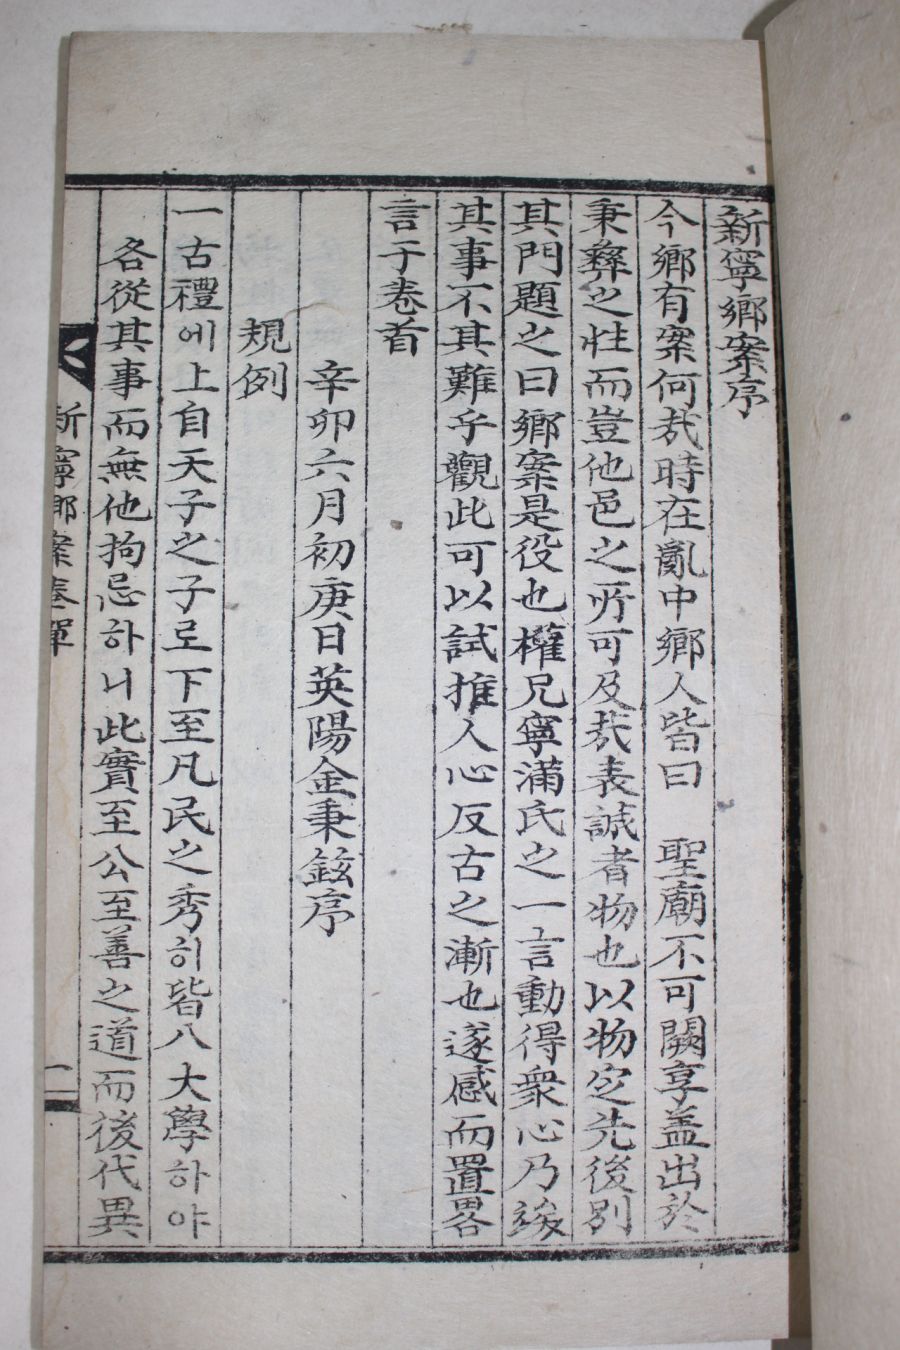 新寧鄉案序
今鄉有案何㢤時在亂中鄉人皆曰　聖廟不可闕享盖出於
秉彜之性而豈他邑之所可及㢤表誠者物也以物定先後別
其門題之曰鄉案是役也權兄寧滿氏之一言動得衆心乃竣
其事不其難乎觀此可以試推人心反古之漸也遂感而置畧
言于卷首
辛卯六月初庚日英陽金秉鉉序
規例
一古禮에上自天子之子로下至凡民之秀히皆入大學하야
各從其事而無他拘忌하니此實至公至善之道而後代異
新寧鄉案卷單
一